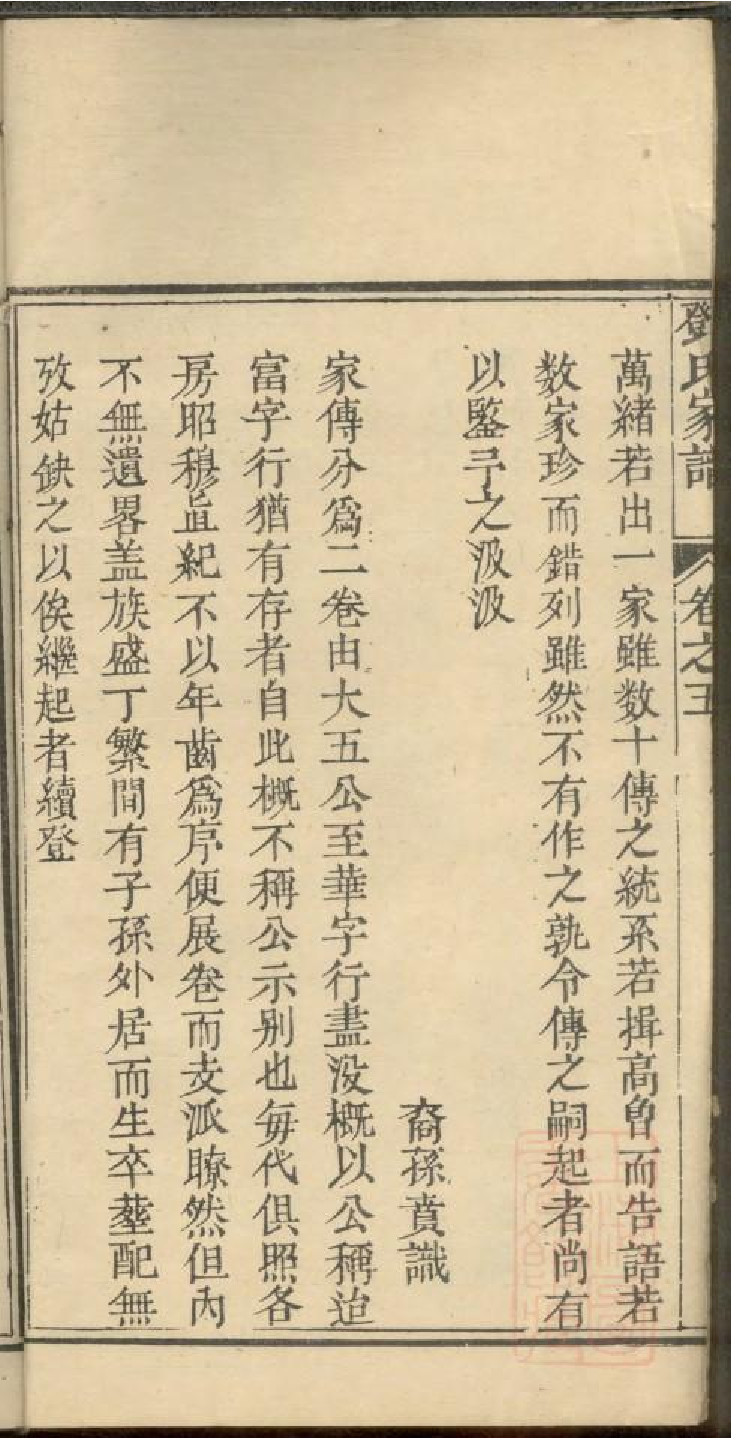 鄧氏家譜 卷之五
萬緒若出一家雖数十傳之統系若揖高曾而告語若
数家珍而錯列雖然不有作之孰令傳之嗣起者尚有
以鍳予之汲汲
裔孫賁識
家傳分爲二卷由大五公至華字行盡没概以公稱迨
富字行猶有存者自此概不稱公示别也每代俱照各
房昭穆直紀不以年齒爲序便展卷而支派瞭然但內
不無遺畧盖族盛丁繁間有子孫外居而生卒塟配無
攷姑缺之以俟繼起者續登